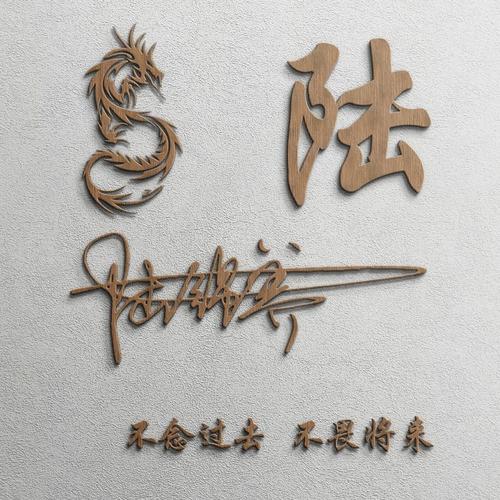 陆
不念过去 不畏将来